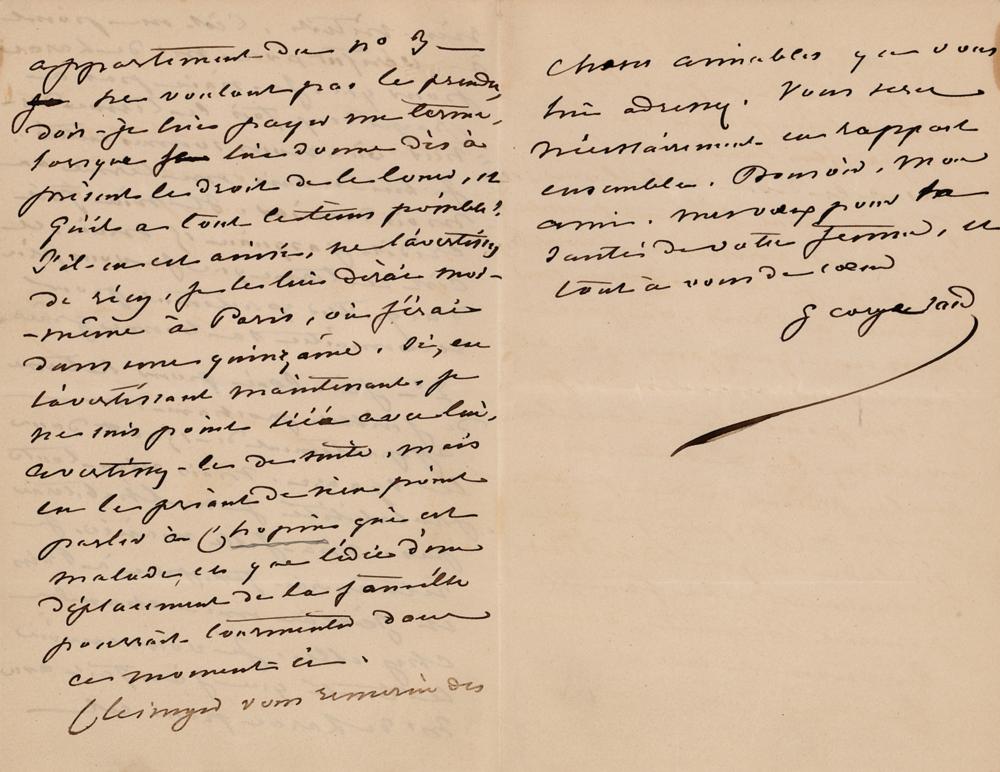 appartement du nº 3 —
ne voulant pas le prendre,
dois-je lui payer un terme,
lorsque je lui donne dès à
présent le droit de le louer, et
qu'il a tout le tems possible?
S'il en est ainsi, ne l'avertissez
de rien, je le lui dirai moi-
-même à Paris, où j'irai
dans une quinzaine. Si, en
l'avertissant maintenant, je
ne suis point liée avec lui,
avertissez-le de suite, mais
en le priant de n'en point
parler à Chopin qui est
malade, et que l'idée d'un
déplacement de la famille
pourrait tourmenter dans
ce moment ci.
Clésinger vous remercie des
choses aimables que vous
lui adressez. Vous serez
nécessairement en rapport
ensemble. Bonsoir, mon
ami. mes vœux pour la
santé de votre femme, et
tout à vous de cœur
George Sand